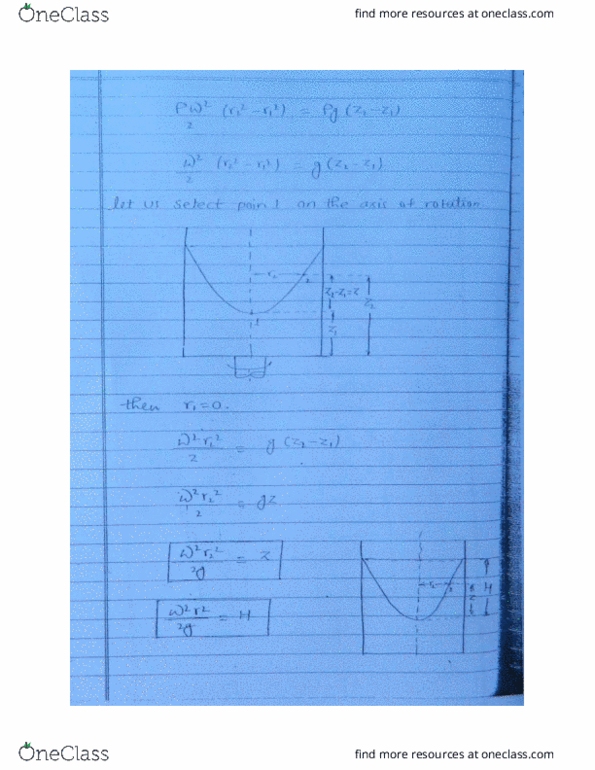 OneClass
find more resources at oneclass.com
ρω²/2 (r₂² − r₁²) = ρg (z₂ − z₁)
ω²/2 (r₂² − r₁²) = g (z₂ − z₁)
let us select point 1 on the axis of rotation
r₂
2
z₂-z₁=z
z₂
1
z₁
then r₁=0.
ω²r₂²/2 = g (z₂−z₁)
ω²r₂²/2 = gz
ω²r₂²/2g = z
r₂ 2 z H
ω²r²/2g = H
OneClass
find more resources at oneclass.com